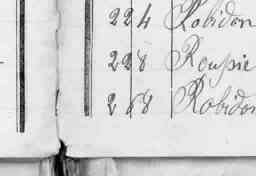 224 Robidon
228 Roupie
268 Robidon